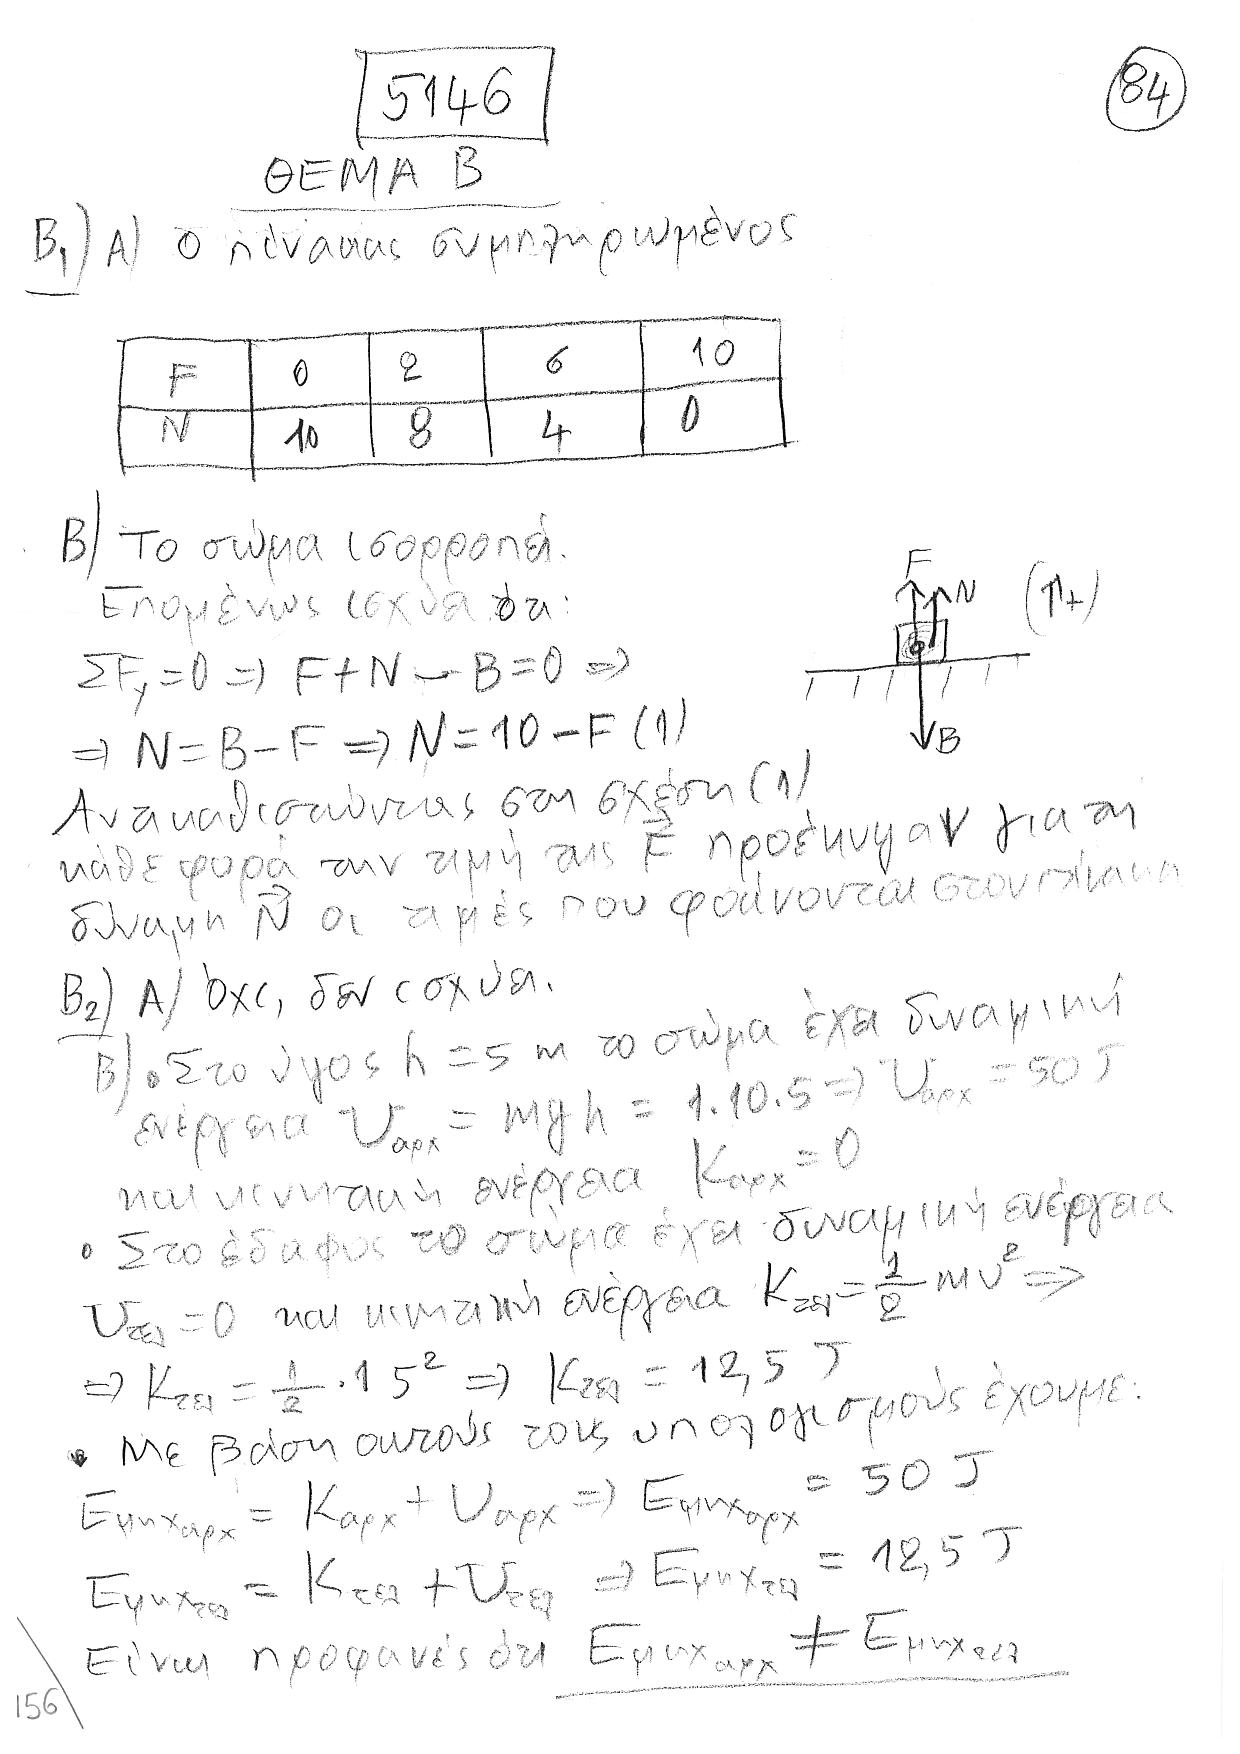 5146
84
ΘΕΜΑ Β
Β₁) Α) Ο πίνακας συμπληρωμένος
F 0 2 6 10
N 10 8 4 0
Β) Το σώμα ισορροπεί.
Επομένως ισχύει ότι:
ΣFy=0 => F+N-B=0 =>
=> N=B-F => N=10-F (1)
F N (↑+)
B
Αντικαθιστώντας στη σχέση (1)
κάθε φορά την τιμή της F⃗ προέκυψαν για τη
δύναμη N⃗ οι τιμές που φαίνονται στον πίνακα
Β₂) Α) Όχι, δεν ισχύει.
Β) • Στο ύψος h=5 m το σώμα έχει δυναμική
ενέργεια Uαρχ = mgh = 1.10.5 => Uαρχ = 50 J
και κινητική ενέργεια Kαρχ = 0
• Στο έδαφος το σώμα έχει δυναμική ενέργεια
Uτελ = 0 και κινητική ενέργεια Kτελ = 1/2 mυ² =>
=> Kτελ = 1/2 · 1 5² => Kτελ = 12,5 J
• Με βάση αυτούς τους υπολογισμούς έχουμε:
Eμηχαρχ = Kαρχ + Uαρχ => Eμηχαρχ = 50 J
Eμηχτελ = Kτελ + Uτελ => Eμηχτελ = 12,5 J
Είναι προφανές ότι Eμηχαρχ ≠ Eμηχτελ
156